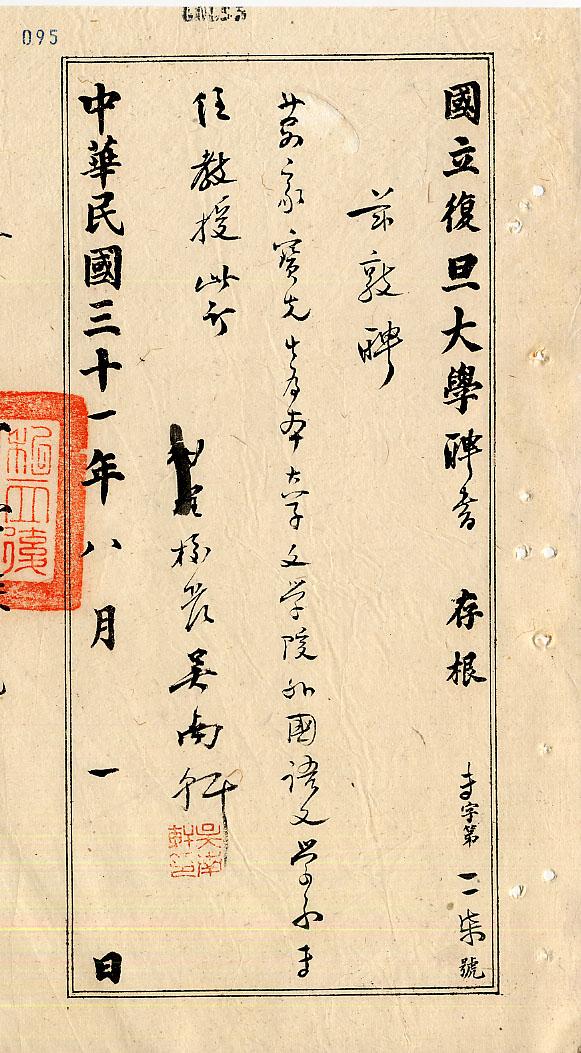 095
國立復旦大學聘書 存根 字第二柒號
茲敦聘
萬家寶先生為本大学文学院外國語文学系
任教授此訂
校長吳南軒
吳南軒
中華民國三十一年八月一日